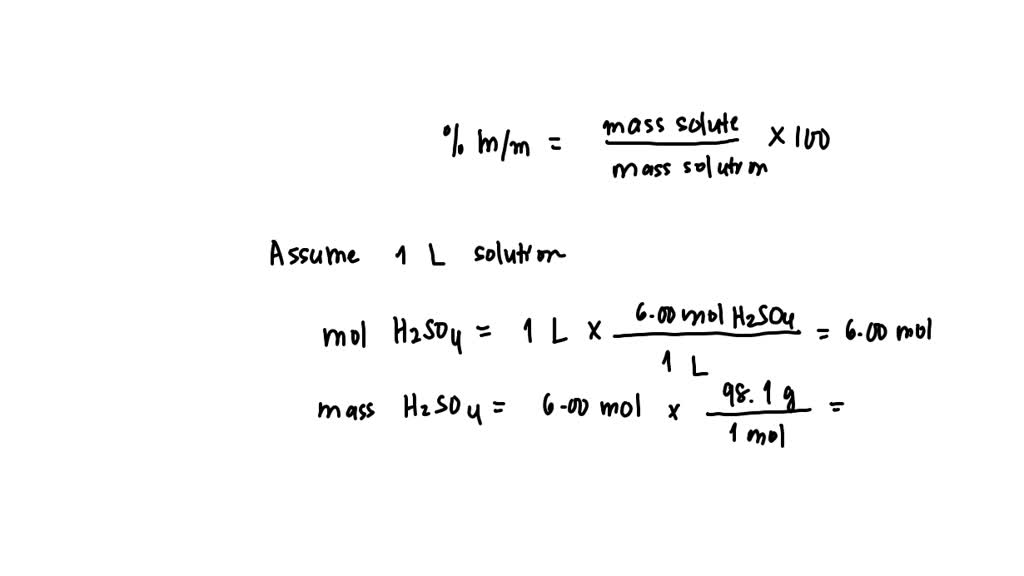 % m/m = mass solute / mass solution × 100
Assume 1 L solution
mol H₂SO₄ = 1 L × 6.00 mol H₂SO₄ / 1 L = 6.00 mol
mass H₂SO₄ = 6.00 mol × 98.1 g / 1 mol =